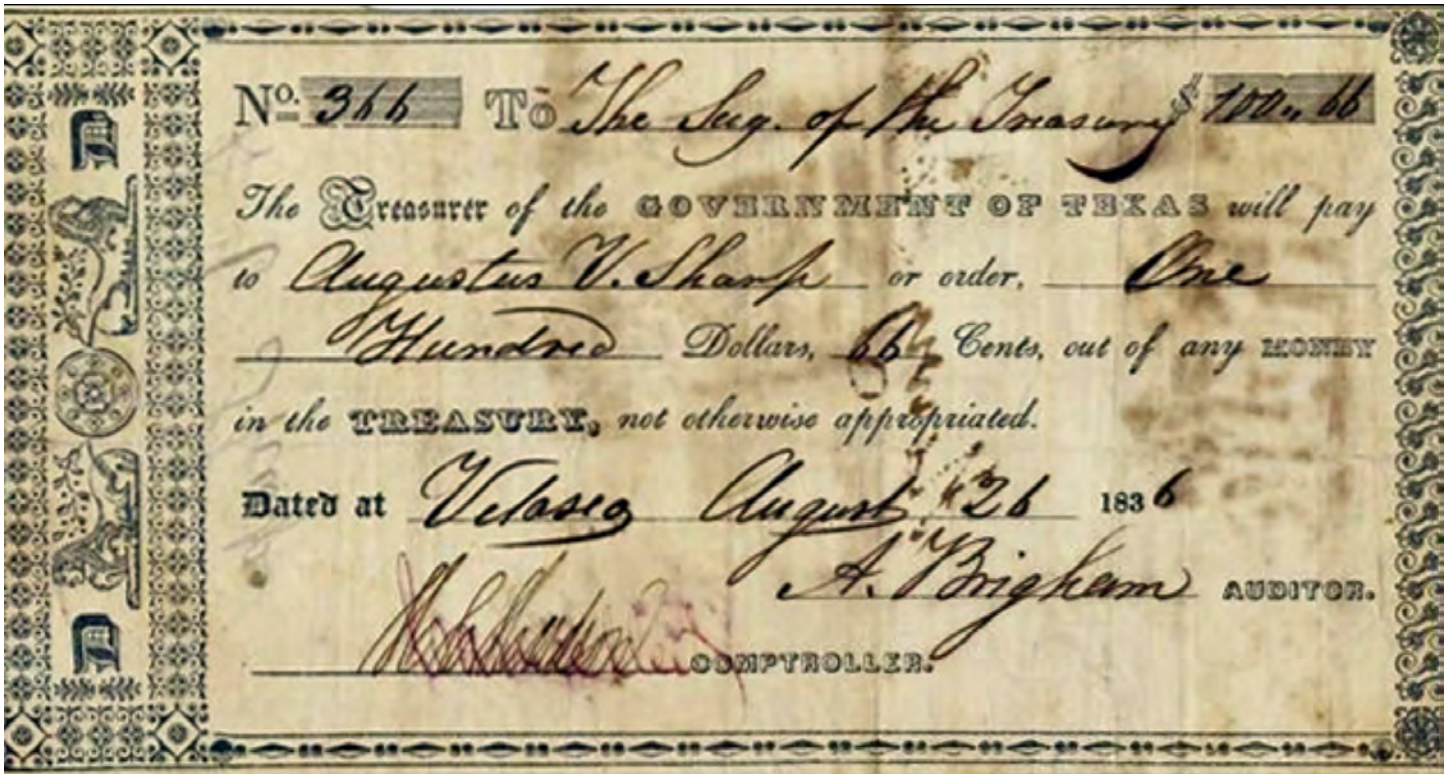 No. 366 To The Secy. of the Treasury $100 " 66
The Treasurer of the GOVERNMENT OF TEXAS will pay
to Augustus V. Sharp or order, One
Hundred Dollars, 66 Cents, out of any MONEY
in the TREASURY, not otherwise appropriated.
Dated at Velasco August 26 1836
A. Brigham AUDITOR.
COMPTROLLER.